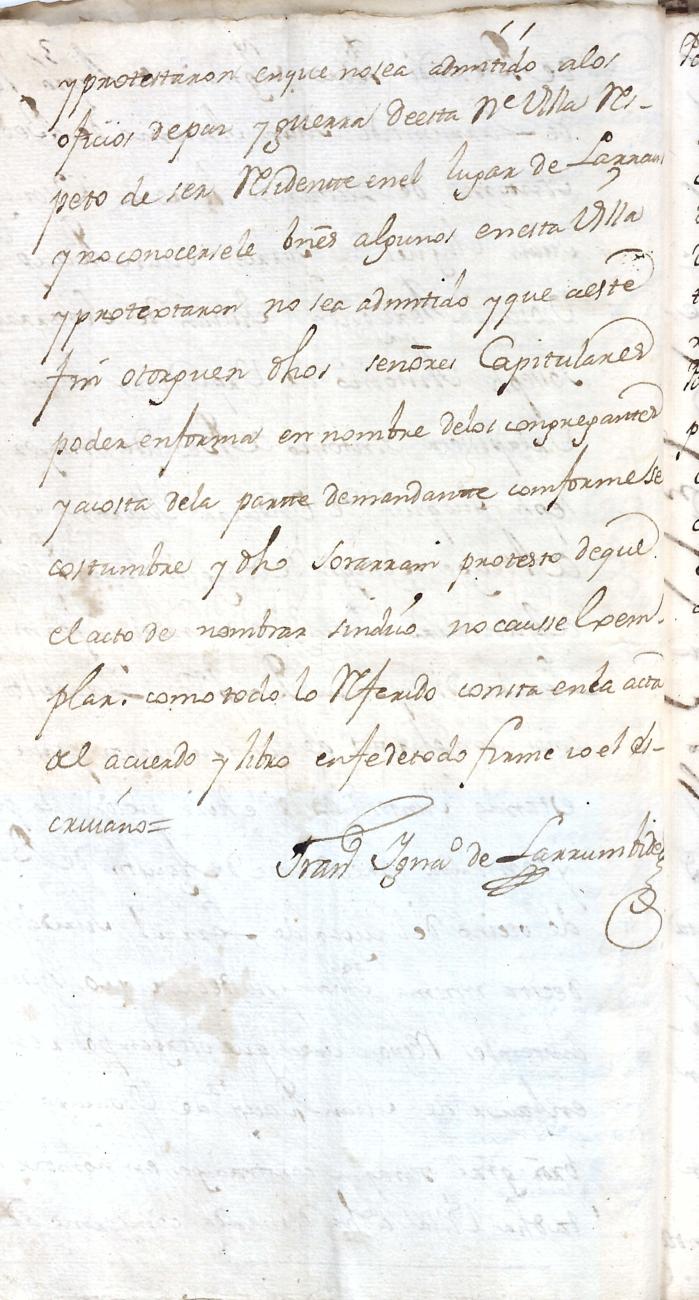 y protestaron en que no sea admitido a los
oficios de paz y guerra de esta Ne Villa Res-
peto de ser Residente en el lugar de Larraul
y no conocersele bnes algunos en esta Villa
y protextaron no sea admitido y que a este
fin otorguen dhos señores Capitulares
poder en forma en nombre de los congregantes
y a costa de la partte demandantte comforme se
costumbre y dho Sorarrain protesto de que
el acto de nombrar sindico no causse Exem-
plar. como todo lo Referido consta en la acta
del acuerdo y libro en fe de todo firme io el es-
criuano=
Franco Ygnao de Larrumbide